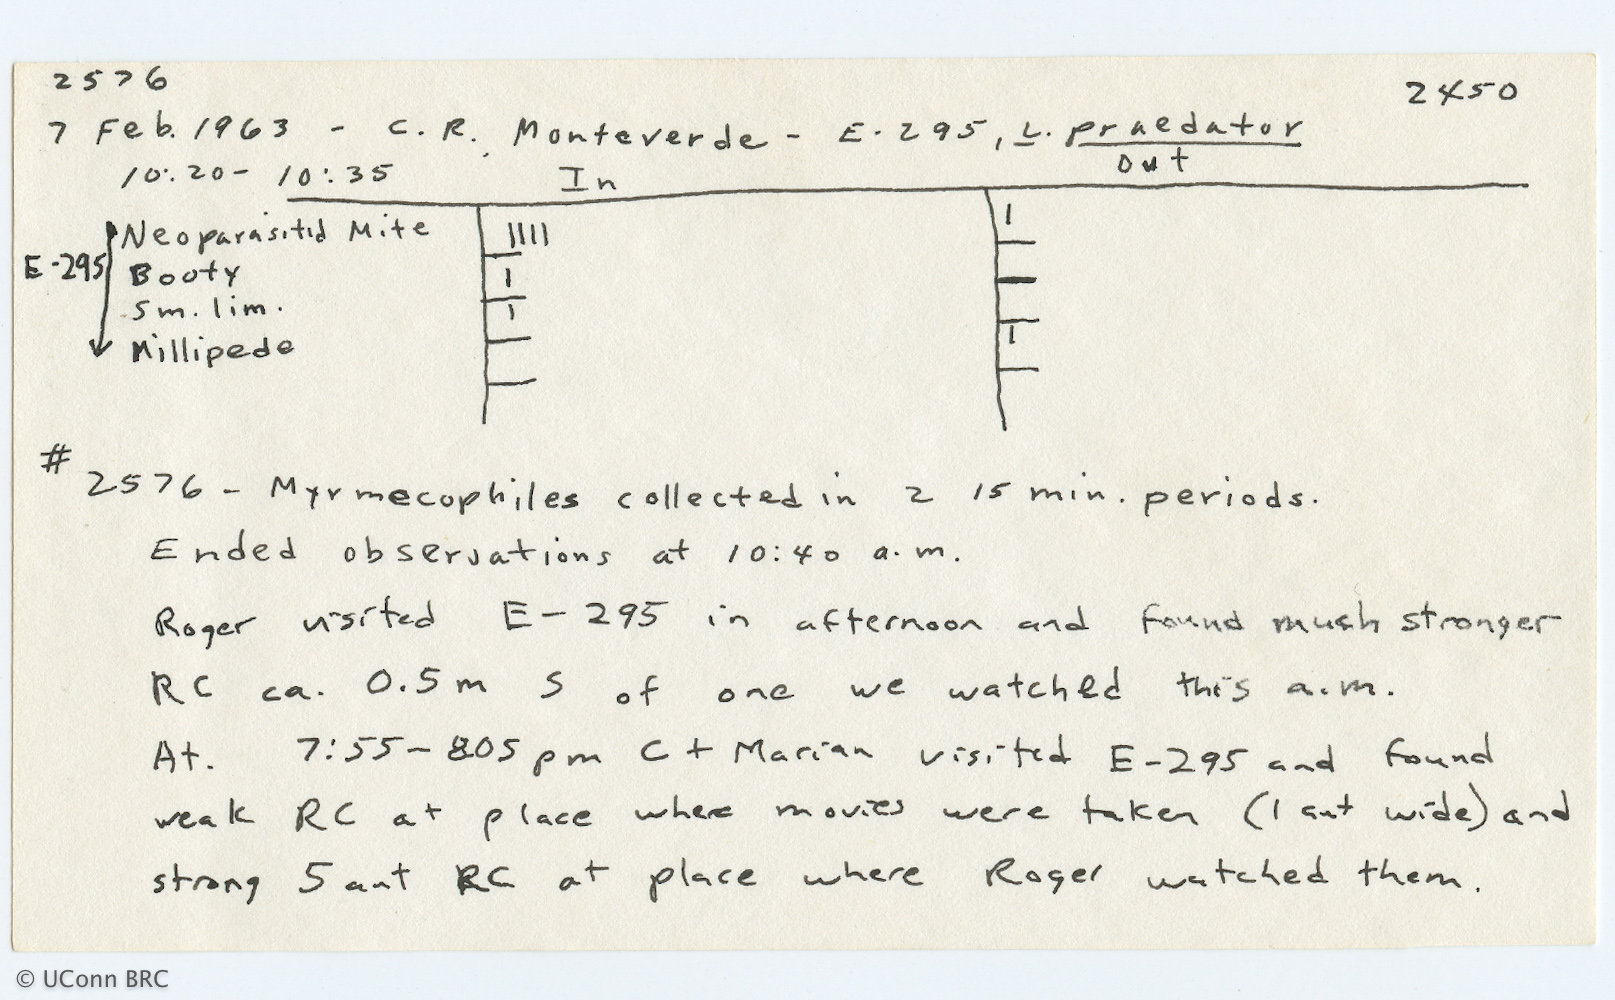 2576
2450
7 Feb. 1963 - C. R. Monteverde - E-295, L. praedator
10:20- 10:35 In Out
Neoparasitid Mite |||| |
E-295 Booty |
Sm. lim. | |
Millipede
#
2576 - Myrmecophiles collected in 2 15 min. periods.
Ended observations at 10:40 a.m.
Roger visited E-295 in afternoon and found much stronger
RC ca. 0.5m S of one we watched this a.m.
At. 7:55-805 pm C + Marian visited E-295 and found
weak RC at place where movies were taken (1 ant wide) and
strong 5 ant RC at place where Roger watched them.
© UConn BRC